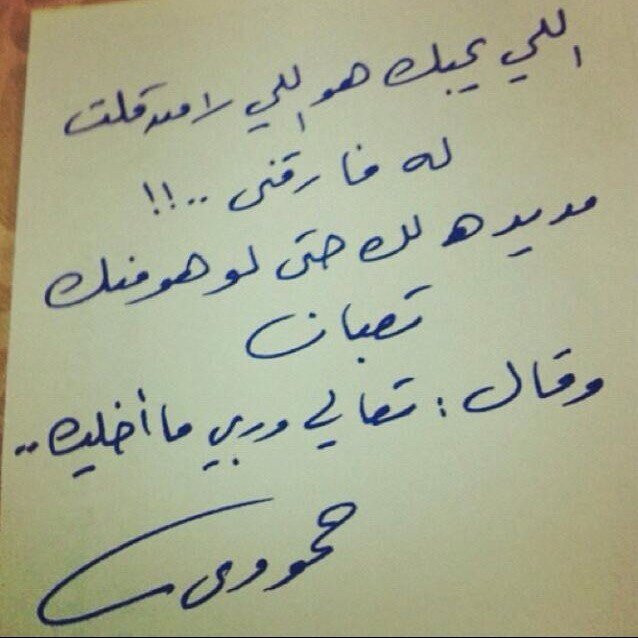 اللي يحبك هو اللي لا منه قلت
له فارقني ..!!
مد يده لك حتى لو هو منك
تعبان
وقال : تعالي وربي ما أخليك ..
حمودي